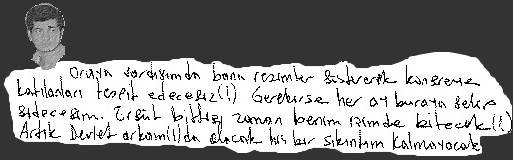 Oraya vardığımda bana resimler göstererek kongreye
katılanları tespit edeceğiz(!) Gerekirse her ay buraya gelip
gideceğim. Örgüt bittiği zaman benim işimde bitecek(!)
Artık Devlet arkam(!)da olacak hiç bir sıkıntım kalmayacak